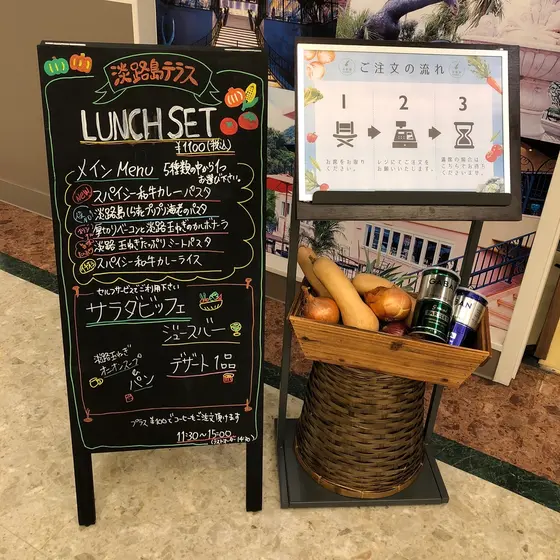 淡路島テラス
LUNCH SET
¥1100(税込)
メイン Menu 5種類の中から1つ
お選び下さい。
スパイシー和牛カレーパスタ
淡路島しらすとプリプリ海老のパスタ
厚切りベーコンと淡路玉ねぎのカルボナーラ
淡路玉ねぎたっぷりミートパスタ
スパイシー和牛カレーライス
セルフサービスでご利用下さい
サラダビッフェ
ジュースバー
淡路玉ねぎ
オニオンスープ
&
パン
デザート1品
プラス¥100でコーヒーもご注文頂けます
11:30~15:00
(ラストオーダー14:30)
ご注文の流れ
1 2 3
お席をお取りください。
レジにてご注文をお願いいたします。